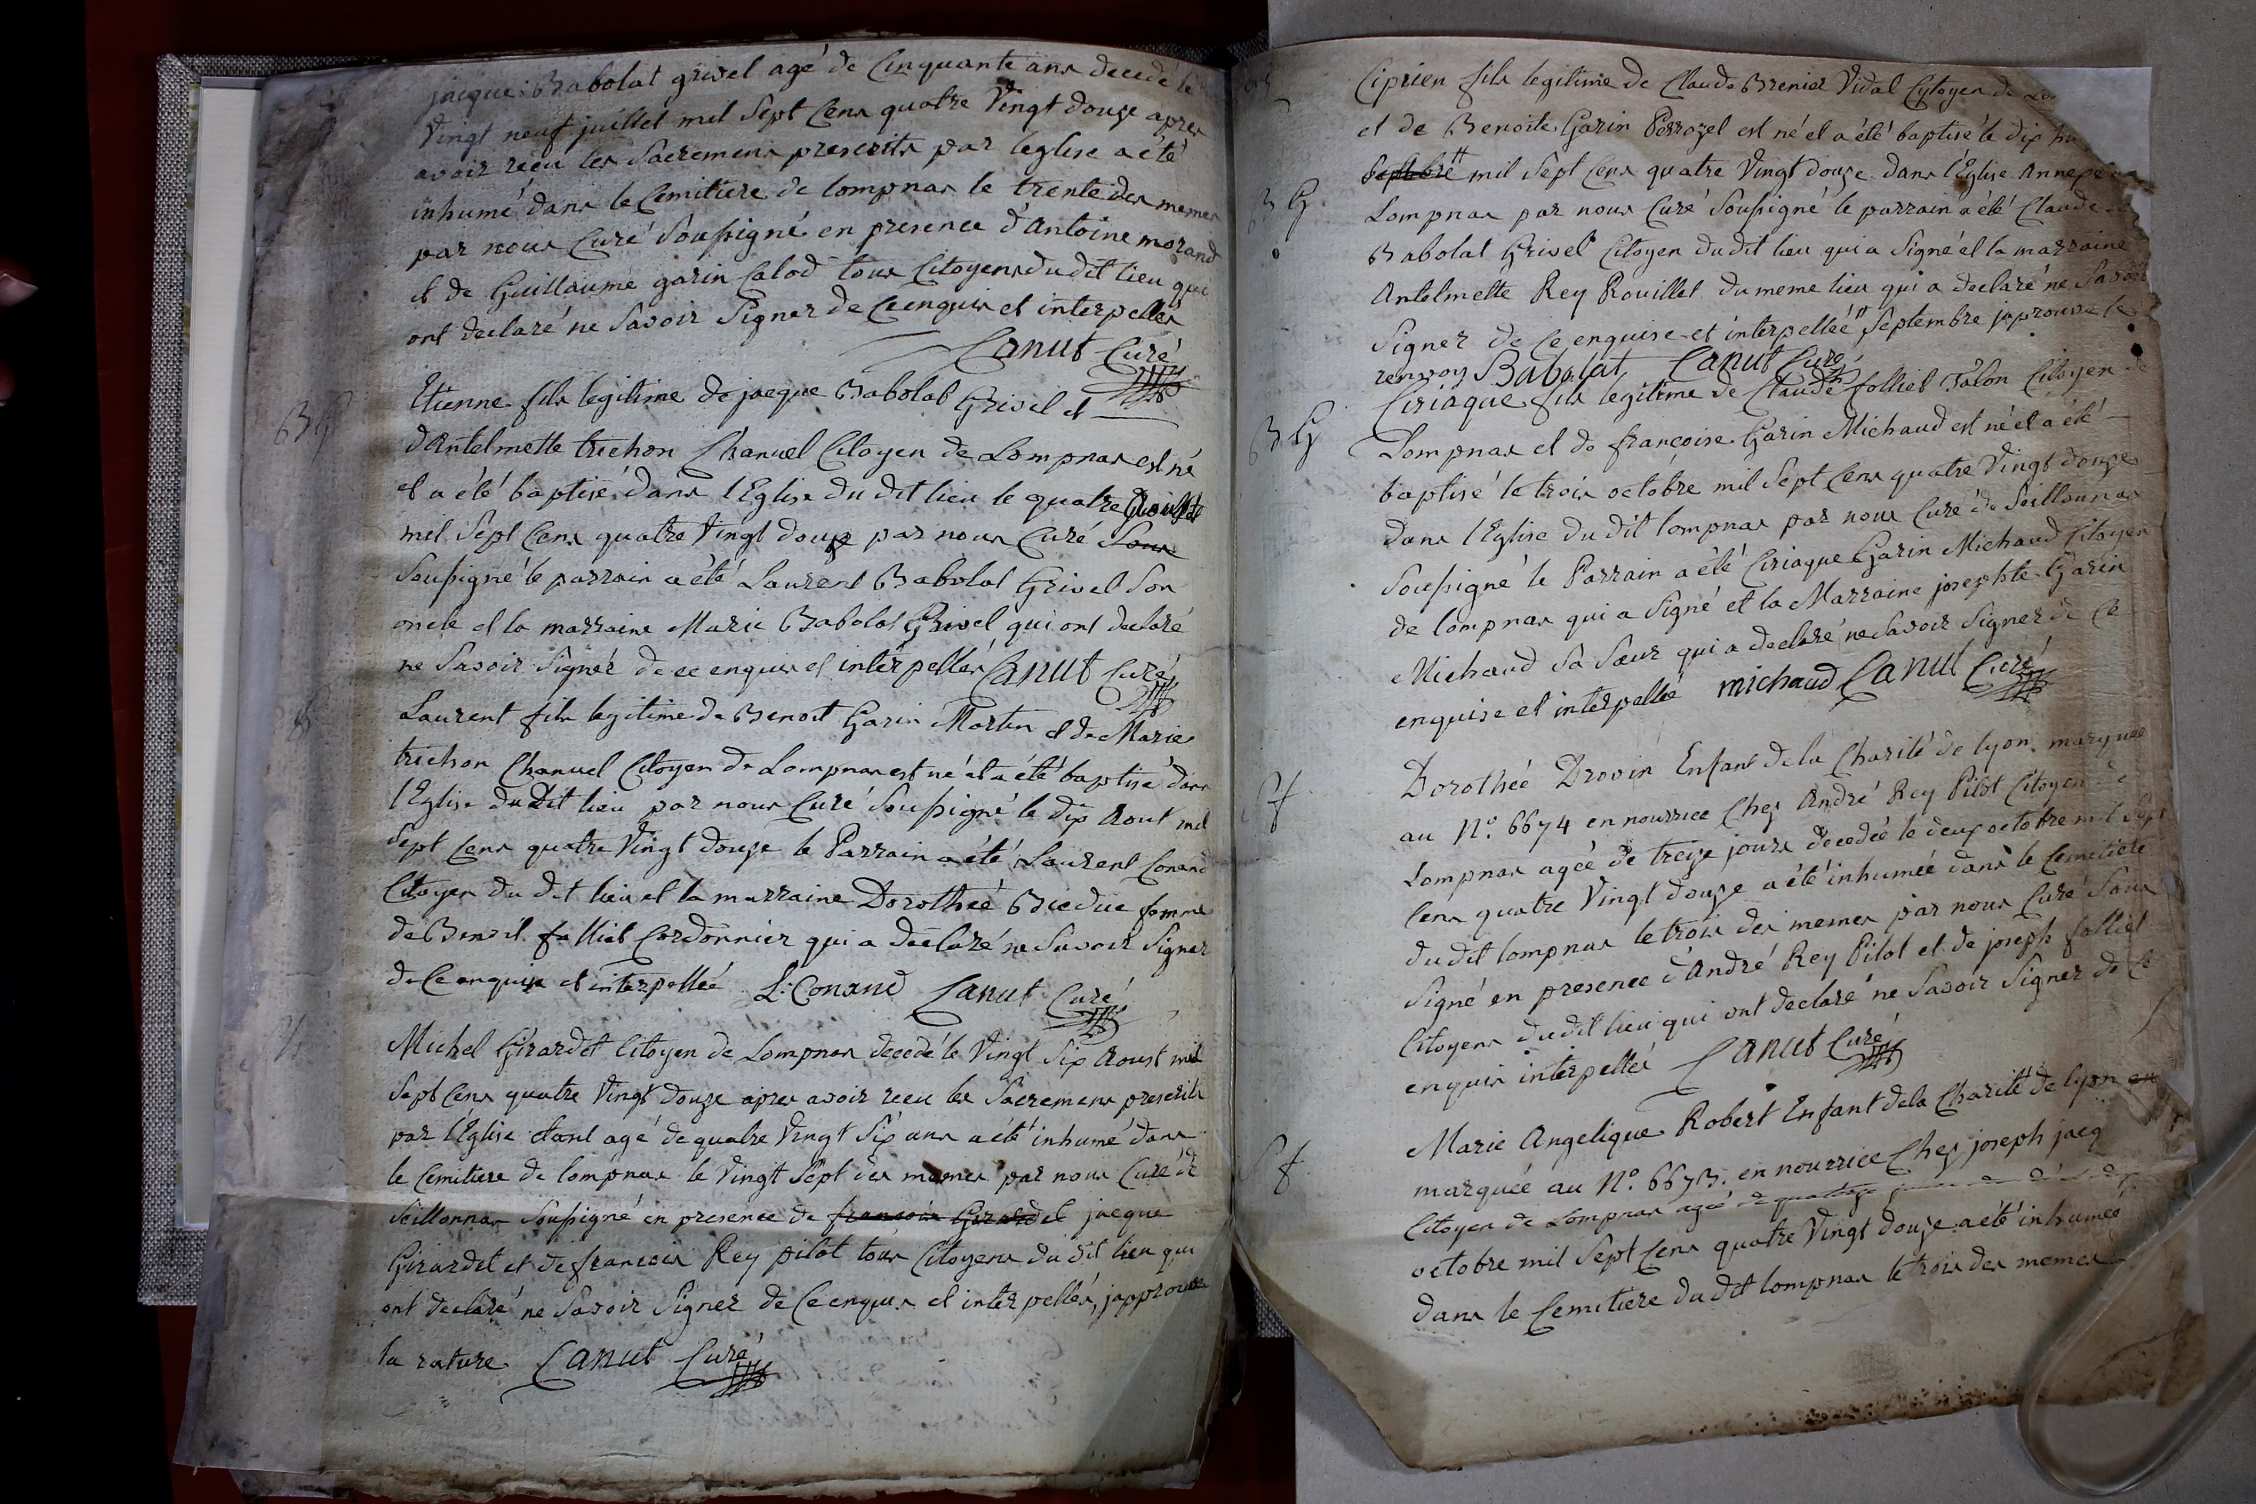 jacque Babolat grivel agé de Cinquante ans decedé le
Vingt neuf juillet mil Sept Cens quatre Vingt douze apres
avoir recu les Sacremens prescrits par leglise a été
inhumé dans le Cemitiere de lompnas le trente des memes
par nous Curé Soussigné en presence d'Antoine morand
et de Guillaume garin Calod tous Citoyens du dit lieu qui
ont declaré ne Savoir Signer de Ce enquis et interpellés
Canut Curé
B G
Etienne fils legitime de jacque Babolat Grivel et
d'Antelmette trichon Chanuel Citoyen de Lompnas est né
et a été baptisé dans l'Eglise du dit lieu le quatre
mil Sept Cens quatre Vingt douze par nous Curé Sous
Soussigné le parrain a été Laurent Babolat Grivel Son
oncle et la marraine Marie Babolat Grivel qui ont declaré
ne Savoir Signer de ce enquis et interpellés Canut Curé
Laurent fils legitime de Benoit Garin Martin et de Marie
trichon Chanuel Citoyen de Lompnas est né et a été baptisé dans
l'Eglise du Dit lieu par nous Curé Soussigné le dix Aout mil
Sept Cens quatre Vingt douze le Parrain a été Laurent Conand
Citoyen du dit lieu et la marraine Dorothée femme
de Benoit folliet Cordonnier qui a declaré ne Savoir Signer
de Ce enquise et interpellée L. Conand Canut Curé
Michel Girardet Citoyen de Lompnas decedé le Vingt Six Aoust mil
Sept Cens quatre Vingt douze apres avoir recu les Sacremens prescrits
par l'Eglise étant agé de quatre Vingt Six ans a été inhumé dans
le Cemitiere de lompnas le Vingt Sept des memes par nous Curé de
Seillonnas Soussigné en presence de francois Girardet jacque
Girardet et de francois Rey pilot tous Citoyens du dit lieu qui
ont declaré ne Savoir Signer de Ce enquis et interpellés, japprouve
la rature Canut Curé
Ciprien fils legitime de Claude Brenier Vidal Citoyen de
et de Benoite Garin Perrozel est né et a été baptisé le dix
Septbre mil Sept Cens quatre Vingt douze dans l'Eglise Annexe
B G
Lompnas par nous Curé Soussigné le parrain a été Claude
Babolat Grivel Citoyen du dit lieu qui a Signé et la marraine
Antelmette Rey Rouillet du meme lieu qui a declaré ne Savoir
Signer de Ce enquise et interpellée Septembre japrouve le
renvoy Babolat Canut Curé
Ciriaque fils legitime de Claude folliet Talon Citoyen de
B G
Lompnas et de francoise Garin Michaud est né et a été
baptisé le trois octobre mil Sept Cens quatre Vingt douze
dans l'Eglise du dit lompnas par nous Curé de Seillonnas
Soussigné le Parrain a été Ciriaque Garin Michaud Citoyen
de lompnas qui a Signé et la Marraine josephte Garin
Michaud Sa Sœur qui a declaré ne Savoir Signer de Ce
enquise et interpellée michaud Canut Curé
Dorothée Drovin Enfant de la Charité de lyon marquée
au No. 6674 en nourrice Chez André Rey Pilot Citoyen de
Lompnas agée de treize jours decedée le deux octobre mil Sept
Cens quatre Vingt douze a été inhumée dans le Cemitiere
du dit lompnas le trois des memes par nous Curé Sous
Signé en presence d'André Rey Pilot et de joseph folliet
Citoyens du dit lieu qui ont declaré ne Savoir Signer de Ce
enquis interpellés Canut Curé
Marie Angelique Robert Enfant dela Charité de lyon en
marquée au No. en nourrice Chez joseph jacq
Citoyen de Lompnas agée de quatorze jours
octobre mil Sept Cens quatre Vingt douze a été inhumée
dans le Cemitiere du dit lompnas le trois des memes